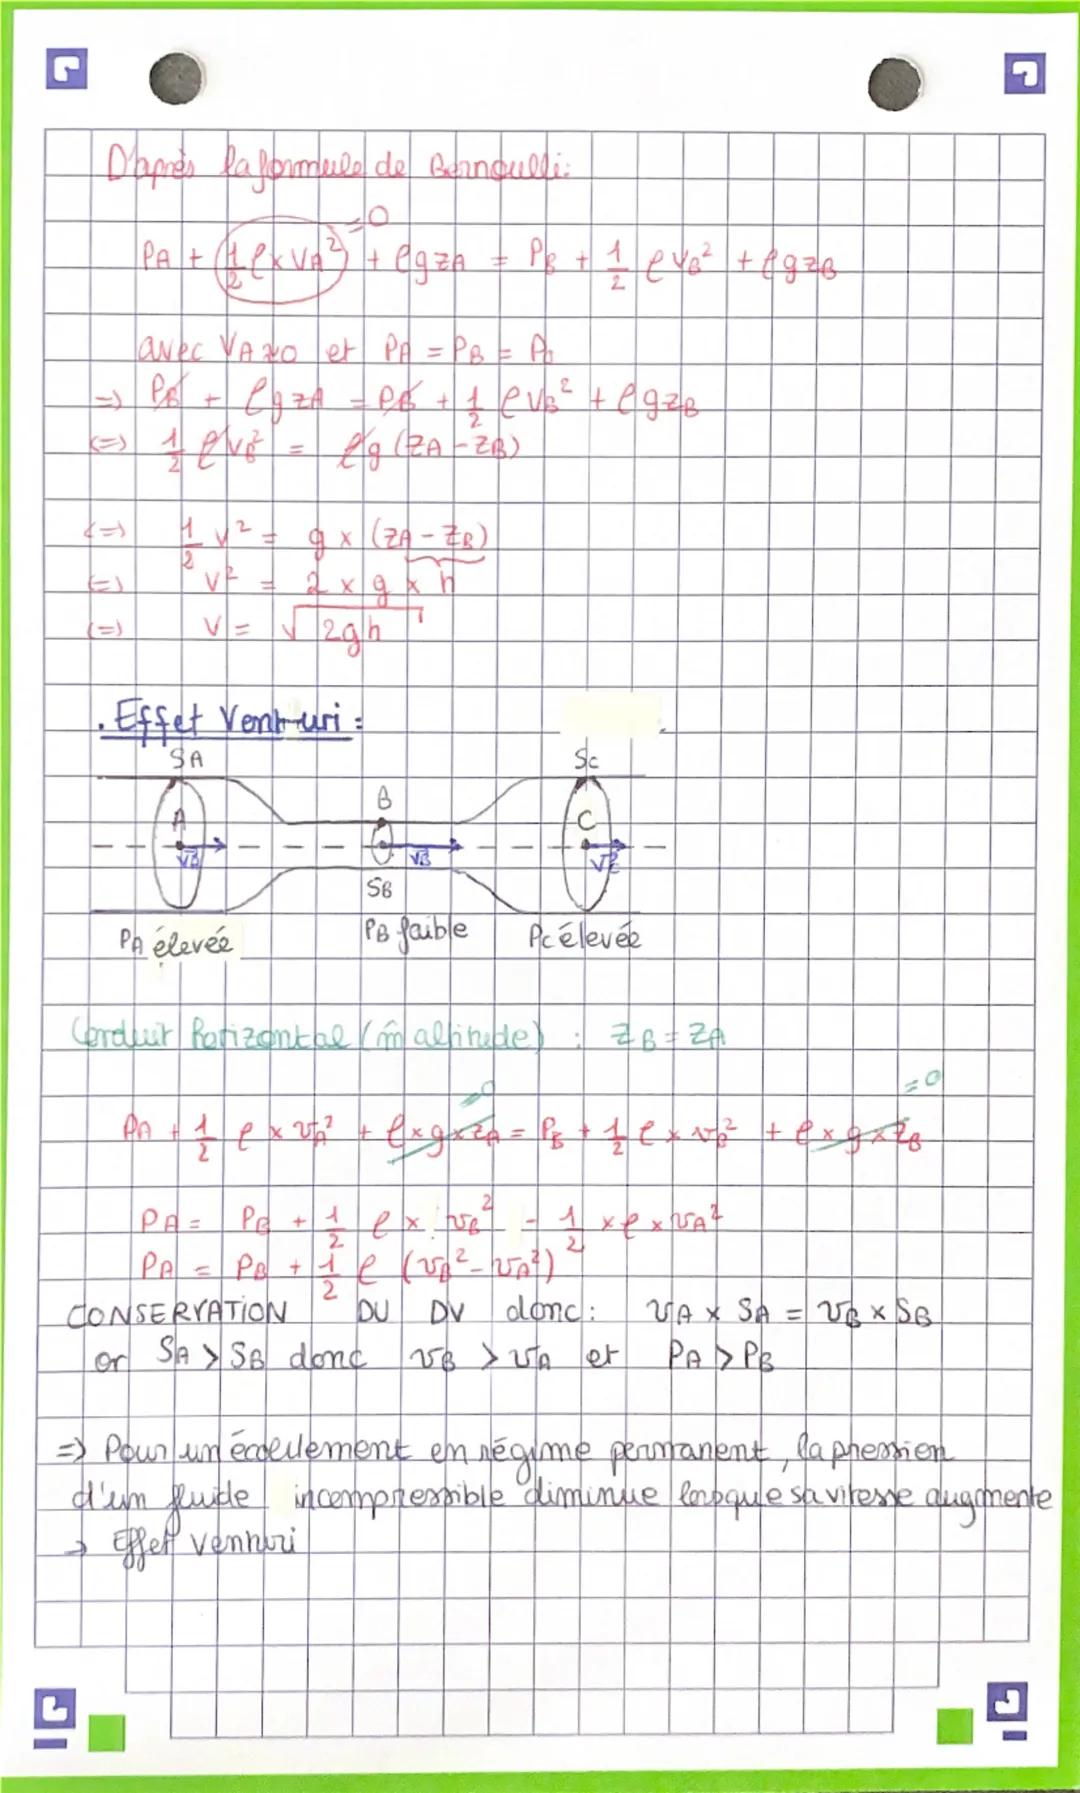 D'après la formule de Bernoulli:
=0
PA + 1/2 ρ x VA² + ρgzA = PB + 1/2 ρ VB² + ρgzB
avec VA≈0 et PA = PB = P0
=> PB + ρgzA = PB + 1/2 ρ VB² + ρgzB
<=> 1/2 ρ VB² = ρg (ZA - ZB)
<=> 1/2 V² = g x (ZA - ZB)
<=> V² = 2 x g x h
<=> V = √2gh
. Effet Venturi :
SA Sc
B
A C
SB
PA élevée PB faible Pc élevée
Conduit horizontal (m̂ altitude) : ZB = ZA
=0 =0
PA + 1/2 ρ x vA² + ρ x g x zA = PB + 1/2 ρ x vB² + ρ x g x zB
PA = PB + 1/2 ρ x vB² - 1/2 x ρ x vA²
PA = PB + 1/2 ρ (vB² - vA²)
CONSERVATION DU DV donc: vA x SA = vB x SB
or SA > SB donc vB > vA et PA > PB
=> Pour un écoulement en régime permanent, la pression
d'um fluide incompressible diminue lorsque sa vitesse augmente
→ Effet venturi